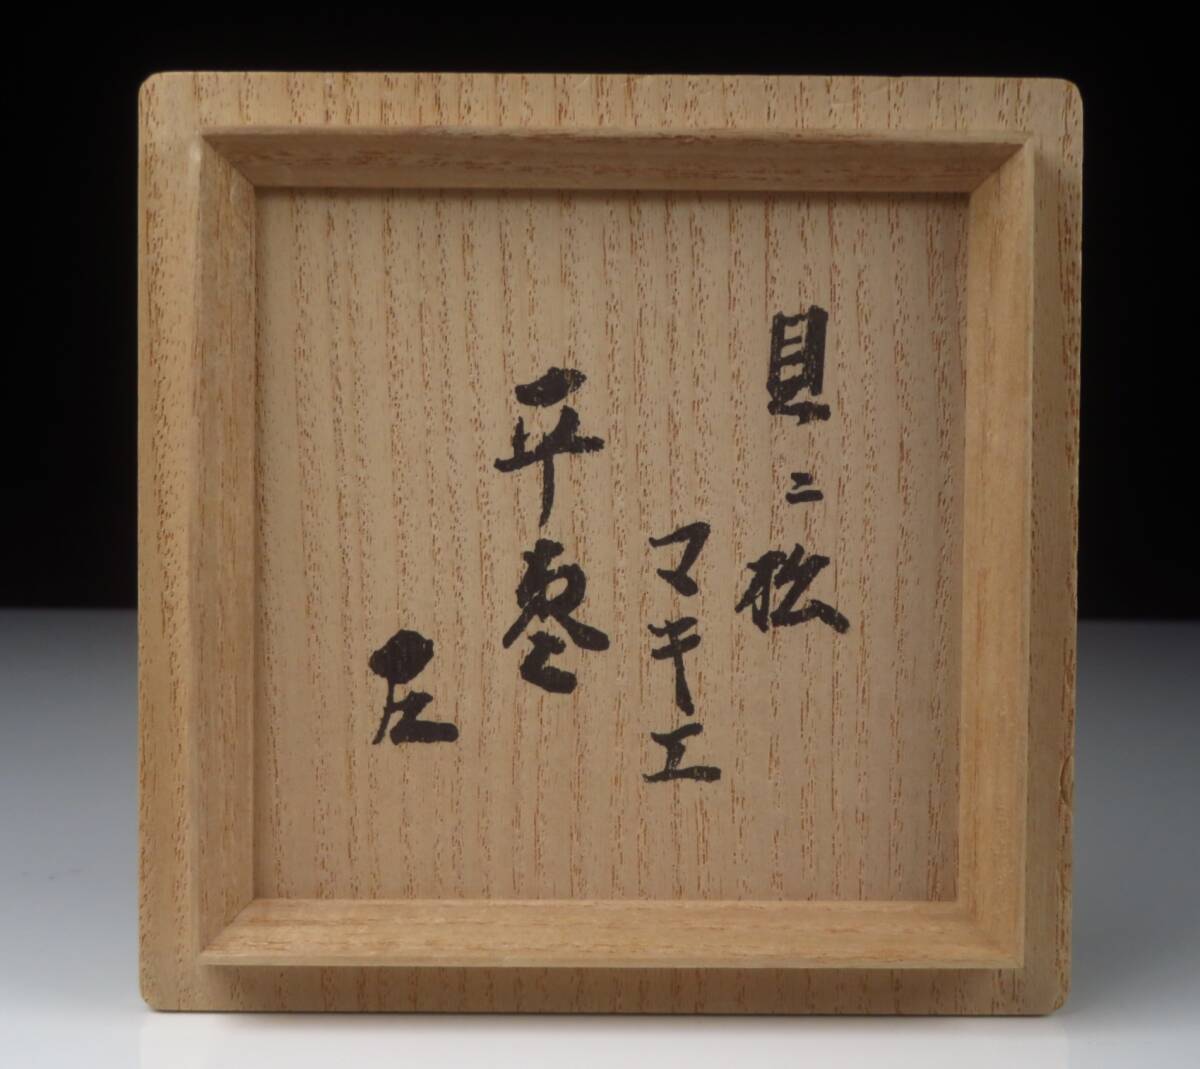 貝ニ松
マキエ
平棗